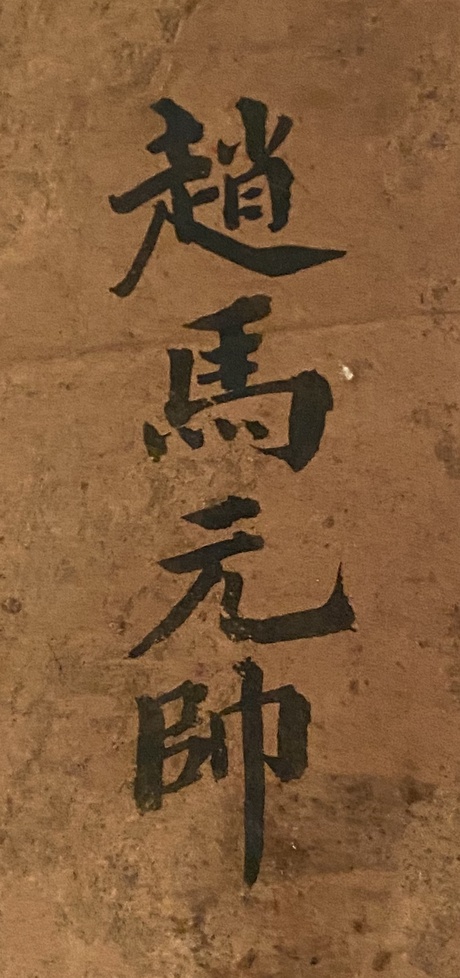 趙馬元帥